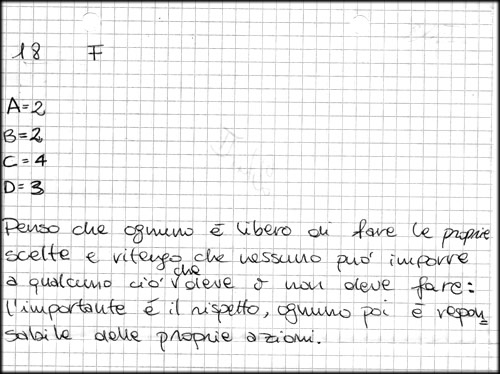 18 F
A=2
B=2
C=4
D=3
Penso che ognuno è libero di fare le proprie
scelte e ritengo che nessuno può imporre
a qualcuno ciò che deve o non deve fare:
l'importante è il rispetto, ognuno poi è respon=
sabile delle proprie azioni.